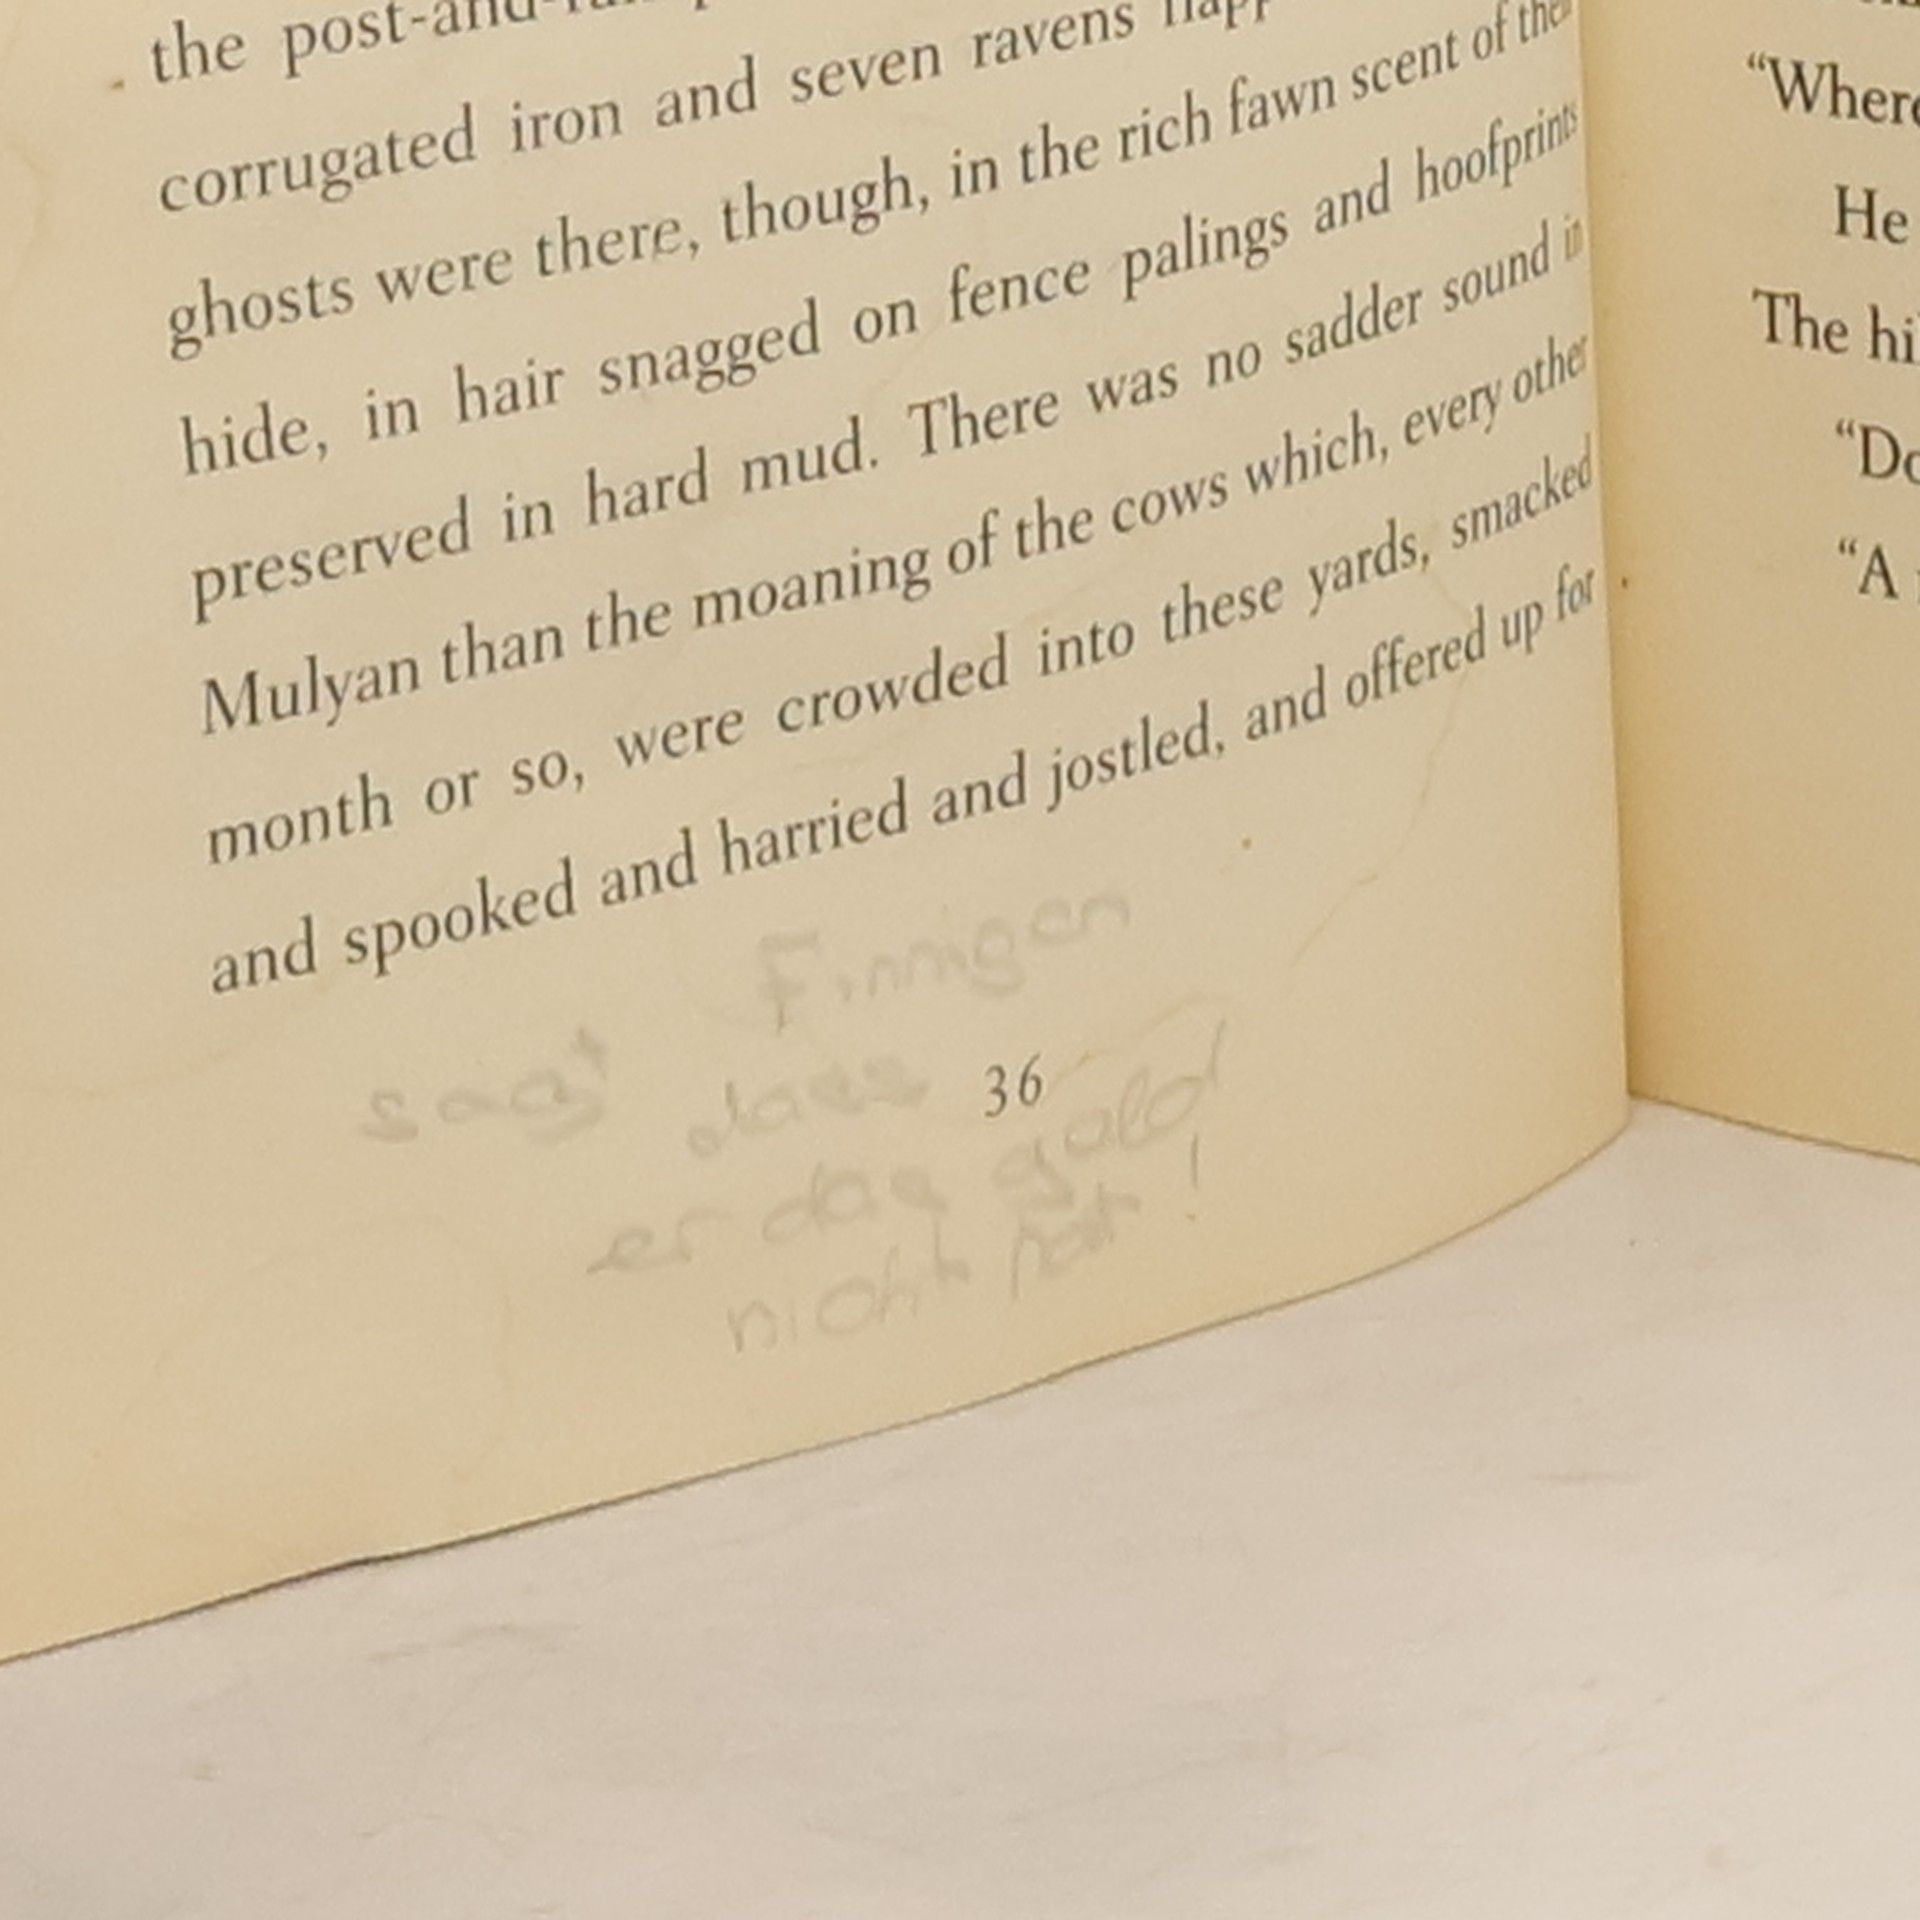 the
corrugated iron and seven ravens
ghosts were there, though, in the rich fawn scent of the
hide, in hair snagged on fence palings and hoofprints
preserved in hard mud. There was no sadder sound in
Mulyan than the moaning of the cows which, every other
month or so, were crowded into these yards, smacked
and spooked and harried and jostled, and offered up for
Finnigan
sagt dass 36
er das geld
nicht hat!
“Where
He
The
“A